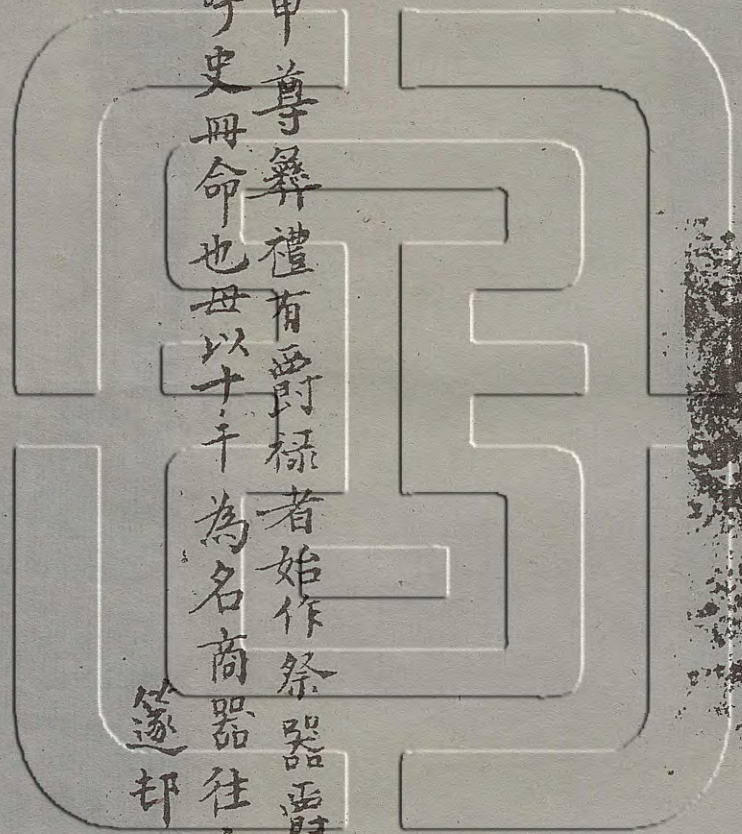 尊彝禮有爵祿者始作祭器爵
史冊命也母以十干為名商器往
邨